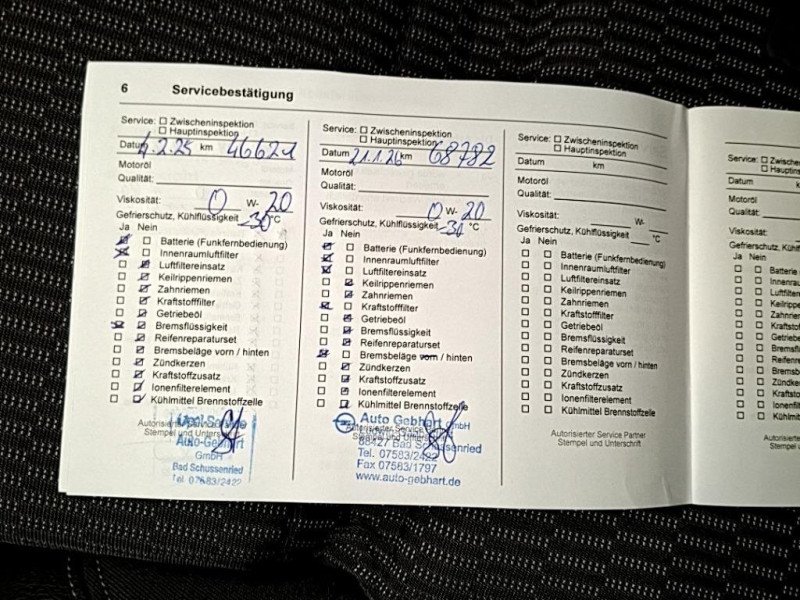 6 Servicebestätigung
Service: ☐ Zwischeninspektion
☐ Hauptinspektion
Datum 2.25 km 46621
Motoröl
Qualität:
Viskosität: 0 W- 20
Gefrierschutz, Kühlflüssigkeit -30 °C
Ja Nein
Batterie (Funkfernbedienung)
Innenraumluftfilter
Luftfiltereinsatz
Keilrippenriemen
Zahnriemen
Kraftstofffilter
Getriebeöl
Bremsflüssigkeit
Reifenreparaturset
Bremsbeläge vorn / hinten
Zündkerzen
Kraftstoffzusatz
Ionenfilterelement
Kühlmittel Brennstoffzelle
Autorisierter Service
Stempel und Unterschrift
Opel Service
Auto-Gebhart
GmbH
Bad Schussenried
Tel. 07583/2422
Service: ☐ Zwischeninspektion
☐ Hauptinspektion
Datum 21.1.26 km 68782
Motoröl
Qualität:
Viskosität: 0 W- 20
Gefrierschutz, Kühlflüssigkeit -30 °C
Ja Nein
Batterie (Funkfernbedienung)
Innenraumluftfilter
Luftfiltereinsatz
Keilrippenriemen
Zahnriemen
Kraftstofffilter
Getriebeöl
Bremsflüssigkeit
Reifenreparaturset
Bremsbeläge vorn / hinten
Zündkerzen
Kraftstoffzusatz
Ionenfilterelement
Kühlmittel Brennstoffzelle
Auto Gebhart GmbH
Autorisierter Service
88427 Bad Schussenried
Tel. 07583/2422
Fax 07583/1797
www.auto-gebhart.de
Service: ☐ Zwischeninspektion
☐ Hauptinspektion
Datum km
Motoröl
Qualität:
Viskosität: W-
Gefrierschutz, Kühlflüssigkeit °C
Ja Nein
Batterie (Funkfernbedienung)
Innenraumluftfilter
Luftfiltereinsatz
Keilrippenriemen
Zahnriemen
Kraftstofffilter
Getriebeöl
Bremsflüssigkeit
Reifenreparaturset
Bremsbeläge vorn / hinten
Zündkerzen
Kraftstoffzusatz
Ionenfilterelement
Kühlmittel Brennstoffzelle
Autorisierter Service Partner
Stempel und Unterschrift
Service: ☐ Zwischen
☐ Hauptins
Datum
Motoröl
Qualität:
Viskosität:
Gefrierschutz, Kühlflüssig
Ja Nein
Batterie
Innenra
Luftfilte
Keilripp
Zahnri
Kraftsto
Getrieb
Bremsf
Reifenre
Bremsb
Zündke
Kraftsto
Ionenfil
Kühlmit
Autorisie
Stempel